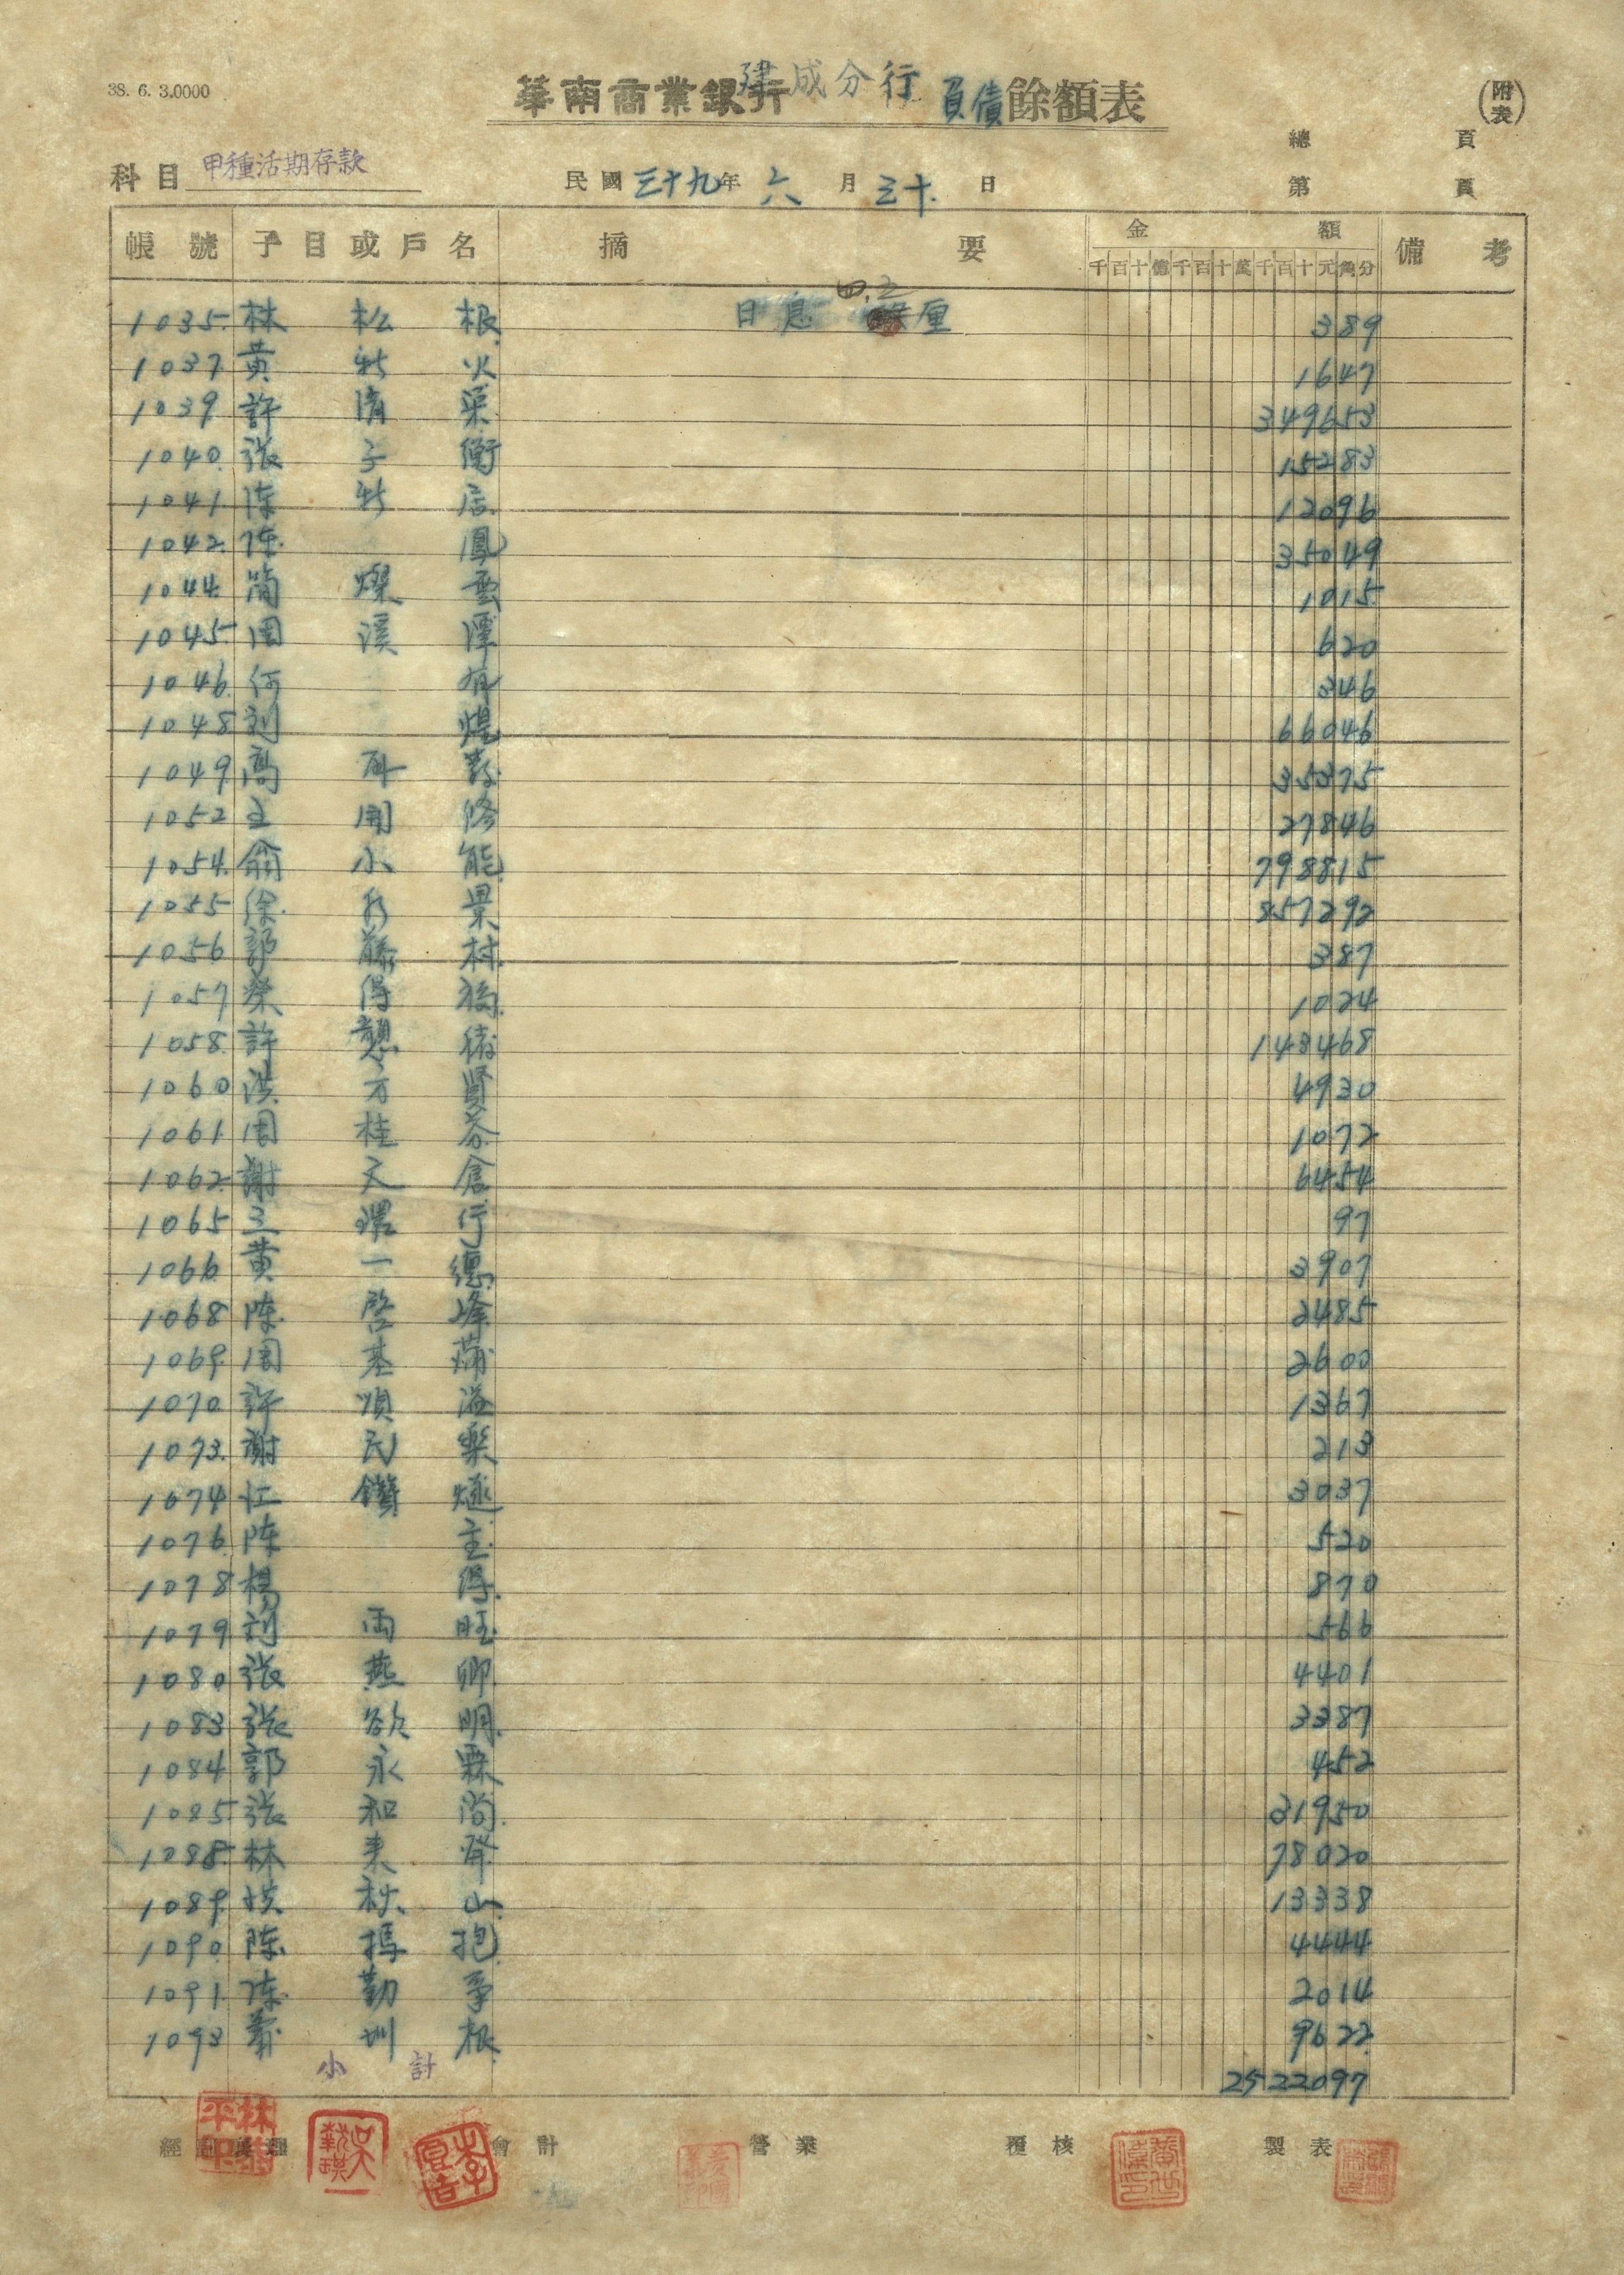 38. 6. 3,0000
華南商業銀行 建成分行 負債餘額表 (附表)
總 頁
科目 甲種活期存款 民國三十九年六月三十日 第 頁
帳號 子目或戶名 摘要 金額 備考
千百十億千百十萬千百十元角分
1035 林松根 日息 四.五 厘 389
1037 黃新火 1647
1039 許清渠 349653
1040 張子衡 15283
1041 陳新居 12096
1042 陳鳳 35049
1044 簡燦雲 1015
1045 周溪潭 620
1046 何有 346
1048 刘焜 66046
1049 高 35375
1052 王開修 27846
1054 翁小能 798815
1055 徐 景 857292
1056 郭藤村 387
1057 榮得 1024
1058 許 143468
1060 洪方賢 4930
1061 周桂芬 1072
1062 謝天倉 6454
1065 97
1066 黃一德 3907
1068 陳啓峰 2485
1069 周基 2600
1070 許順溢 1367
1073 謝民樂 213
1074 江鑽燧 3037
1076 陳主 520
1078 楊得 870
1079 刘兩旺 566
1080 張燕卿 4401
1083 張欽明 3387
1084 郭永霖 452
1085 張和尚 31950
1088 林 78020
1089 秋山 13338
1090 陳 抱 4444
1091 陳勤爭 2014
1093 圳根 9622
小計 2522097
經副襄理 會計 營業 覆核 製表